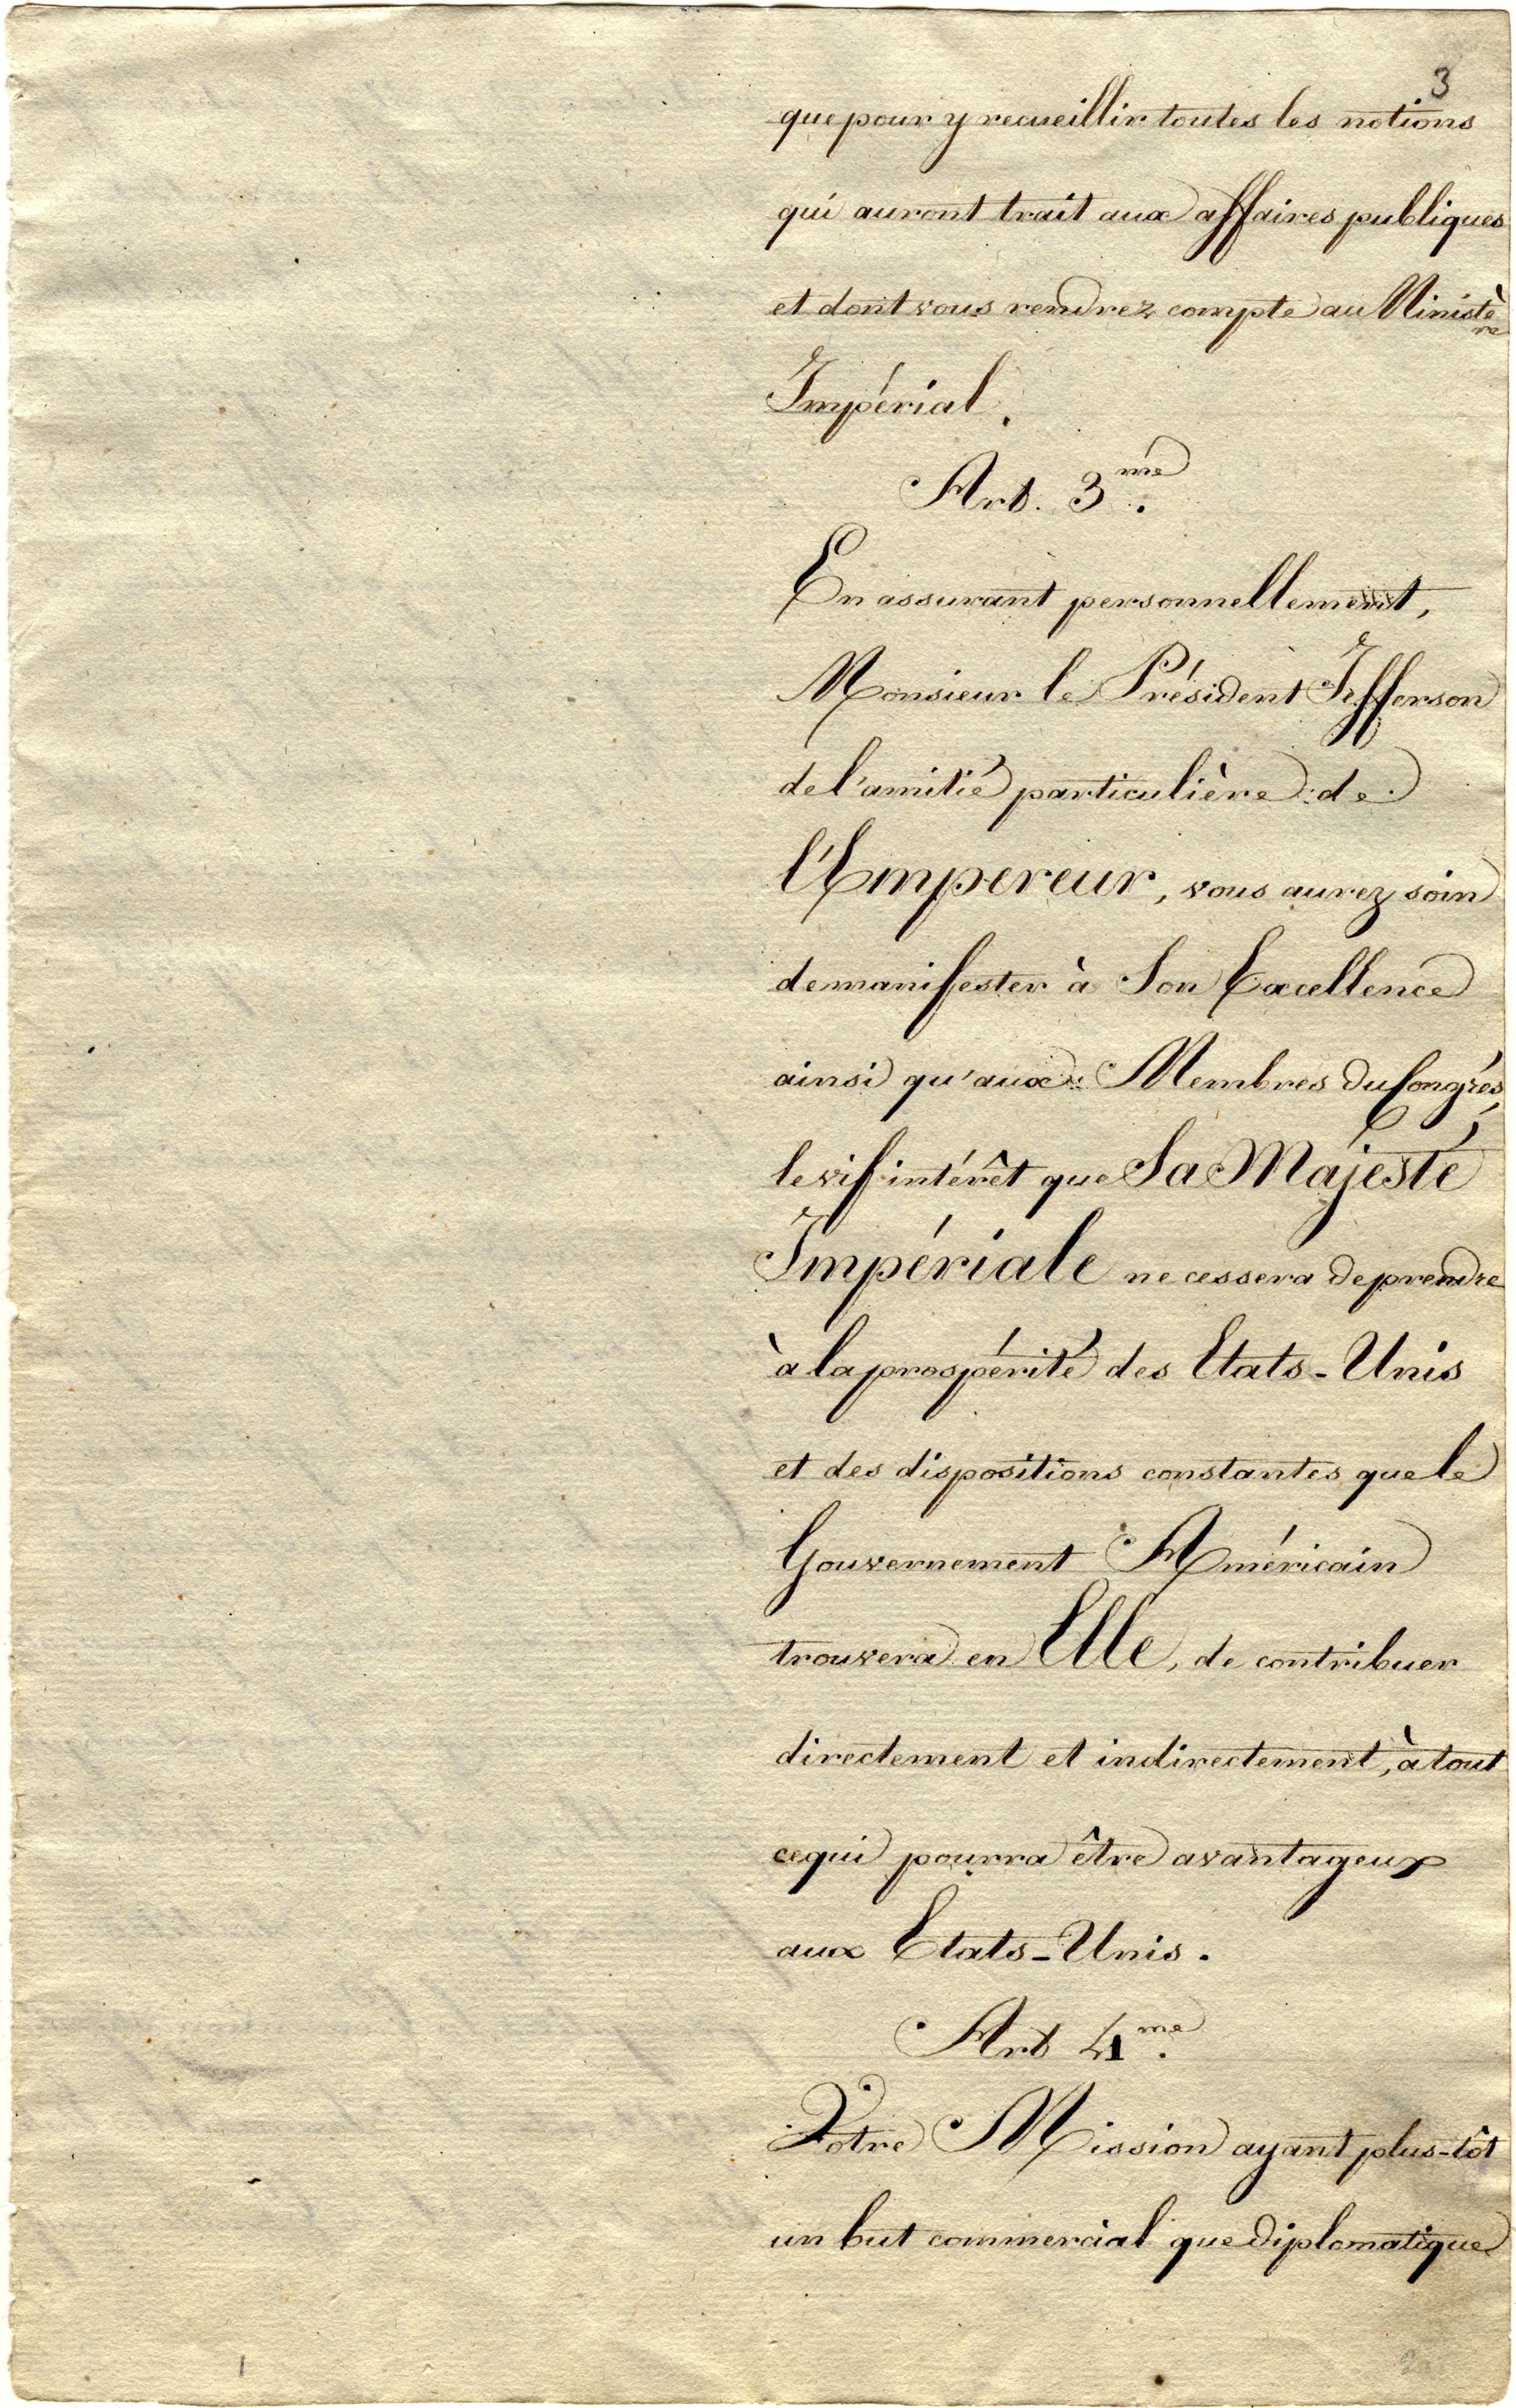 3
que pour y recueillir toutes les notions
qui auront trait aux affaires publiques
et dont vous rendrez compte au Ministère
Impérial.
Art. 3.me
En assurant personnellement,
Monsieur le Président Jefferson
de l'amitié particulière de
l'Empereur, vous aurez soin
de manifester à Son Excellence
ainsi qu'aux Membres du Congrès,
le vif intérêt que Sa Majesté
Impériale ne cessera de prendre
à la prospérité des Etats-Unis
et des dispositions constantes que le
Gouvernement Américain
trouvera en Elle, de contribuer
directement et indirectement, à tout
ce qui pourra être avantageux
aux Etats-Unis.
Art 4.me
Votre Mission ayant plus-tôt
un but commercial que diplomatique